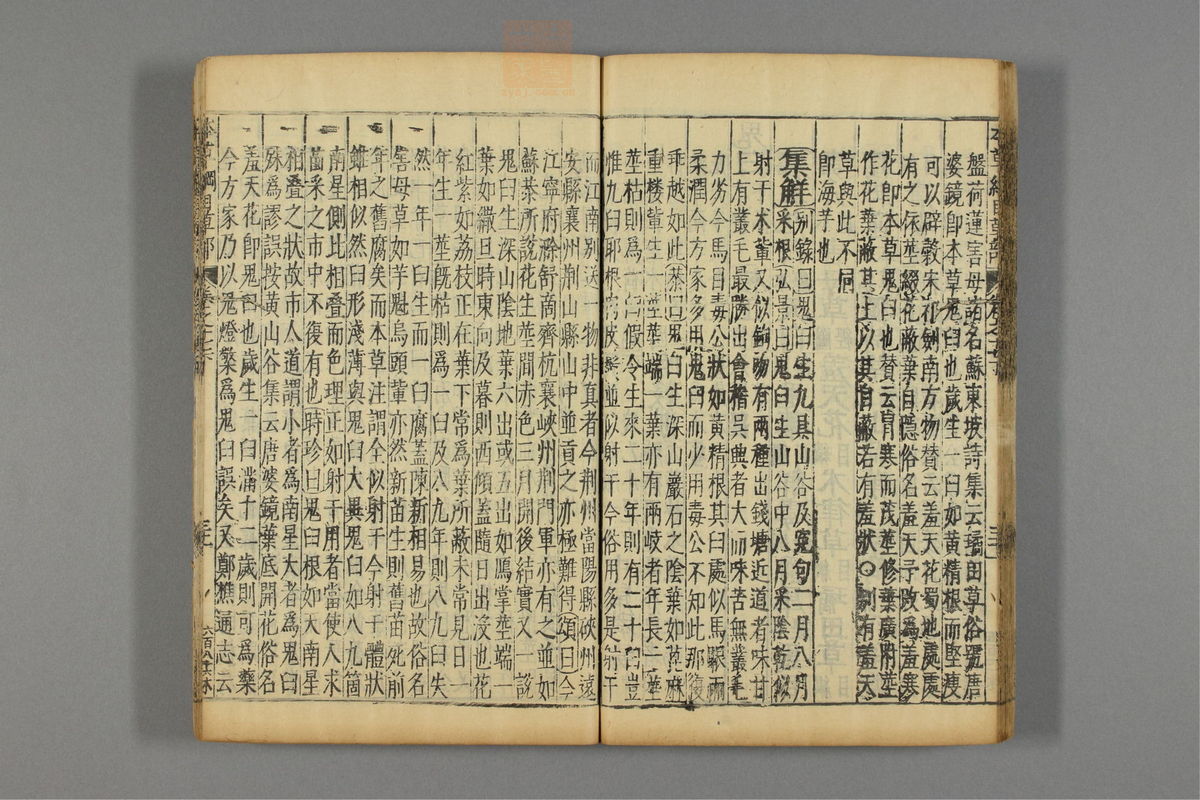 盤荷蓮害母諸名蘇東坡詩集云璚田草俗號唐
婆鏡即本草鬼臼也歲生一臼如黃精根而堅瘦
可以辟穀宋祁劍南方物贊云羞天花蜀地處處
有之依莖綴花蔽葉自隱俗名羞天予改為羞寒
花即本草鬼臼也贊云冒寒而茂莖修葉廣附莖
作花葉蔽其上以其自蔽若有羞狀○別有羞天
草與此不同
即海芋也
集解別錄曰鬼臼生九真山谷及冤句二月八月
采根弘景曰鬼臼生山谷中八月采陰乾似
射干术輩又似鉤吻有兩種出錢塘近道者味甘
上有叢毛最勝出會稽吳興者大而味苦無叢毛
力劣今馬目毒公狀如黃精根其臼處似馬眼而
柔潤今方家多用鬼臼而少用毒公不知此那復
乖越如此恭曰鬼臼生深山巖石之陰葉如蓖麻
重樓輩生一莖莖端一葉亦有兩岐者年長一莖
莖枯則為一臼假令生來二十年則有二十臼豈
惟九臼耶根肉皮鬚並似射干今俗用多是射干
而江南別送一物非真者今荊州當陽縣硤州遠
安縣襄州荊山縣山中並貢之亦極難得頌曰今
江寧府滁舒商齊杭襄峽州荊門軍亦有之並如
蘇恭所說花生莖間赤色三月開後結實又一說
鬼臼生深山陰地葉六出或五出如鴈掌莖端一
葉如繖旦時東向及暮則西傾蓋隨日出沒也花
紅紫如荔枝正在葉下常為葉所蔽未常見日一
年生一莖既枯則為一臼及八九年則八九臼矣
然一年一臼生而一臼腐蓋陳新相易也故俗名
害母草如芋魁烏頭輩亦然新苗生則舊苗死前
年之舊腐矣而本草注謂全似射干今射干體狀
雖相似然臼形淺薄與鬼臼大異鬼臼如八九箇
南星側比相疊而色理正如射干用者當使人求
苗采之市中不復有也時珍曰鬼臼根如天南星
相疊之狀故市人通謂小者為南星大者為鬼臼
殊為謬誤按黃山谷集云唐婆鏡葉底開花俗名
羞天花即鬼臼也歲生一臼滿十二歲則可為藥
今方家乃以鬼燈檠為鬼臼誤矣又鄭樵通志云